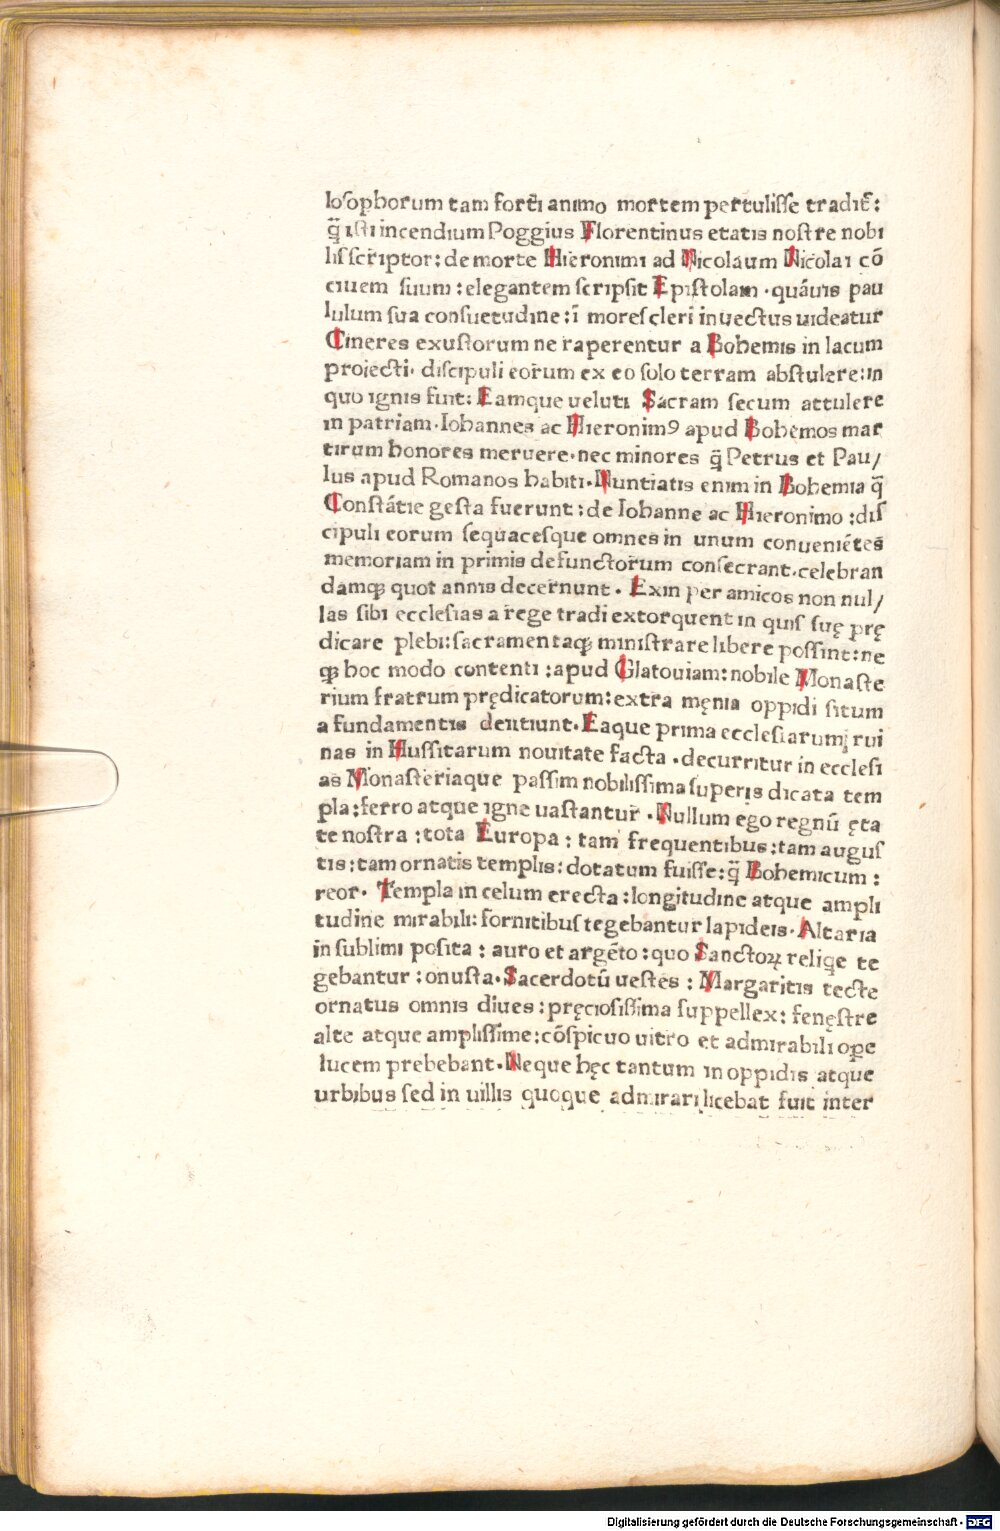 losophorum tam forti animo mortem pertulisse tradit̄:
q̄ isti incendium Poggius Florentinus etatis nostre nobi
lis scriptor: de morte Hieronimi ad Nicolaum Nicolai cō
ciuem suum: elegantem scripsit Epistolam . quāuis pau
lulum sua consuetudine: ī mores cleri inuectus uideatur
Cineres exustorum ne raperentur a Bohemis in lacum
proiecti. discipuli eorum ex eo solo terram abstulere: in
quo ignis fuit: Eamque ueluti Sacram secum attulere
in patriam. Iohannes ac Hieronimꝰ apud Bohemos mar
tirum honores meruere. nec minores q̄ Petrus et Pau/
lus apud Romanos habiti. Nuntiatis enim in Bohemia q̄
Constātie gesta fuerunt: de Iohanne ac Hieronimo: dis
cipuli eorum sequacesque omnes in unum conueniētes
memoriam in primis defunctorum consecrant. celebran
damqꝫ quot annis decernunt. Exin per amicos non nul/
las sibi ecclesias a rege tradi extorquent in quis suę prę
dicare plebi: sacramentaqꝫ ministrare libere possint: ne
qꝫ hoc modo contenti: apud Glatouiam: nobile Monaste
rium fratrum prędicatorum: extra męnia oppidi situm
a fundamentis deītiunt. Eaque prima ecclesiarum rui
nas in Hussitarum nouitate facta . decurritur in ecclesi
as Monasteriaque passim nobilissima superis dicata tem
pla: ferro atque igne uastantur . Nullum ego regnū ęta
te nostra: tota Europa: tam frequentibus: tam augus
tis: tam ornatis templis: dotatum fuisse: q̄ Bohemicum:
reor. Templa in celum erecta: longitudine atque ampli
tudine mirabili: fornitibus tegebantur lapideis. Altaria
in sublimi posita: auro et argēto: quo Sanctoꝝ reliqe te
gebantur: onusta. Sacerdotū uestes: Margaritis tecte
ornatus omnis diues: pręciosissima suppellex: fenęstre
alte atque amplissime: cōspicuo uitro et admirabili oꝑe
lucem prebebant. Neque hęc tantum in oppidis atque
urbibus sed in uillis quoque admirari licebat fuit inter
Digitalisierung gefördert durch die Deutsche Forschungsgemeinschaft - DFG